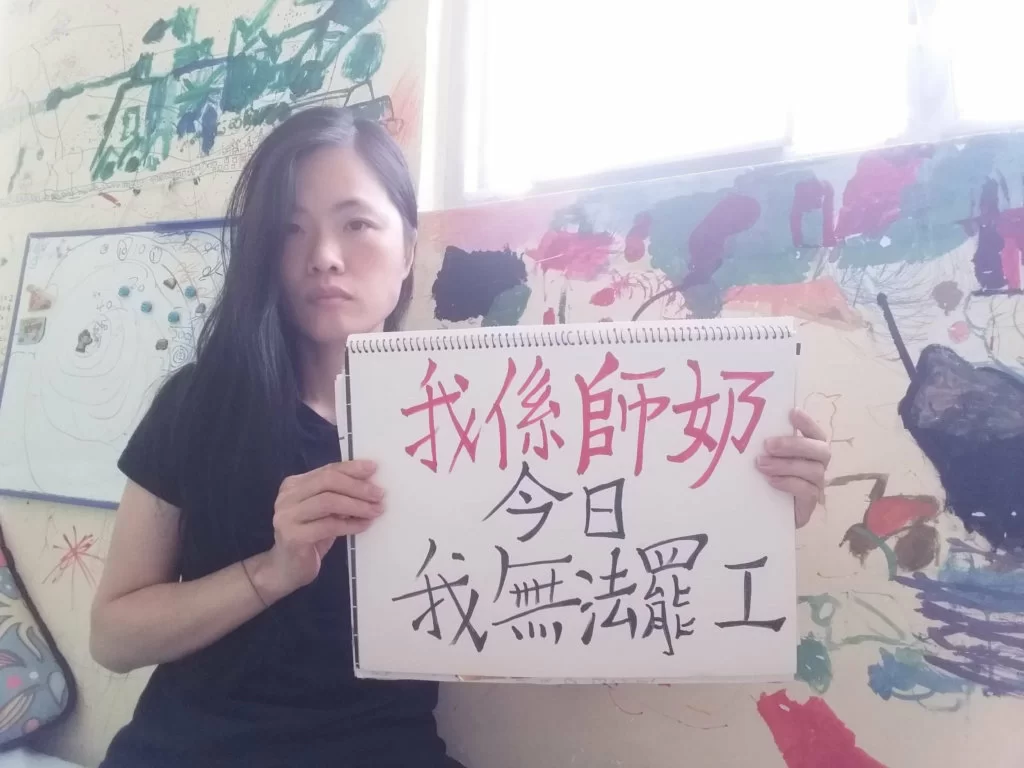 我係師奶
今日
我無法罷工